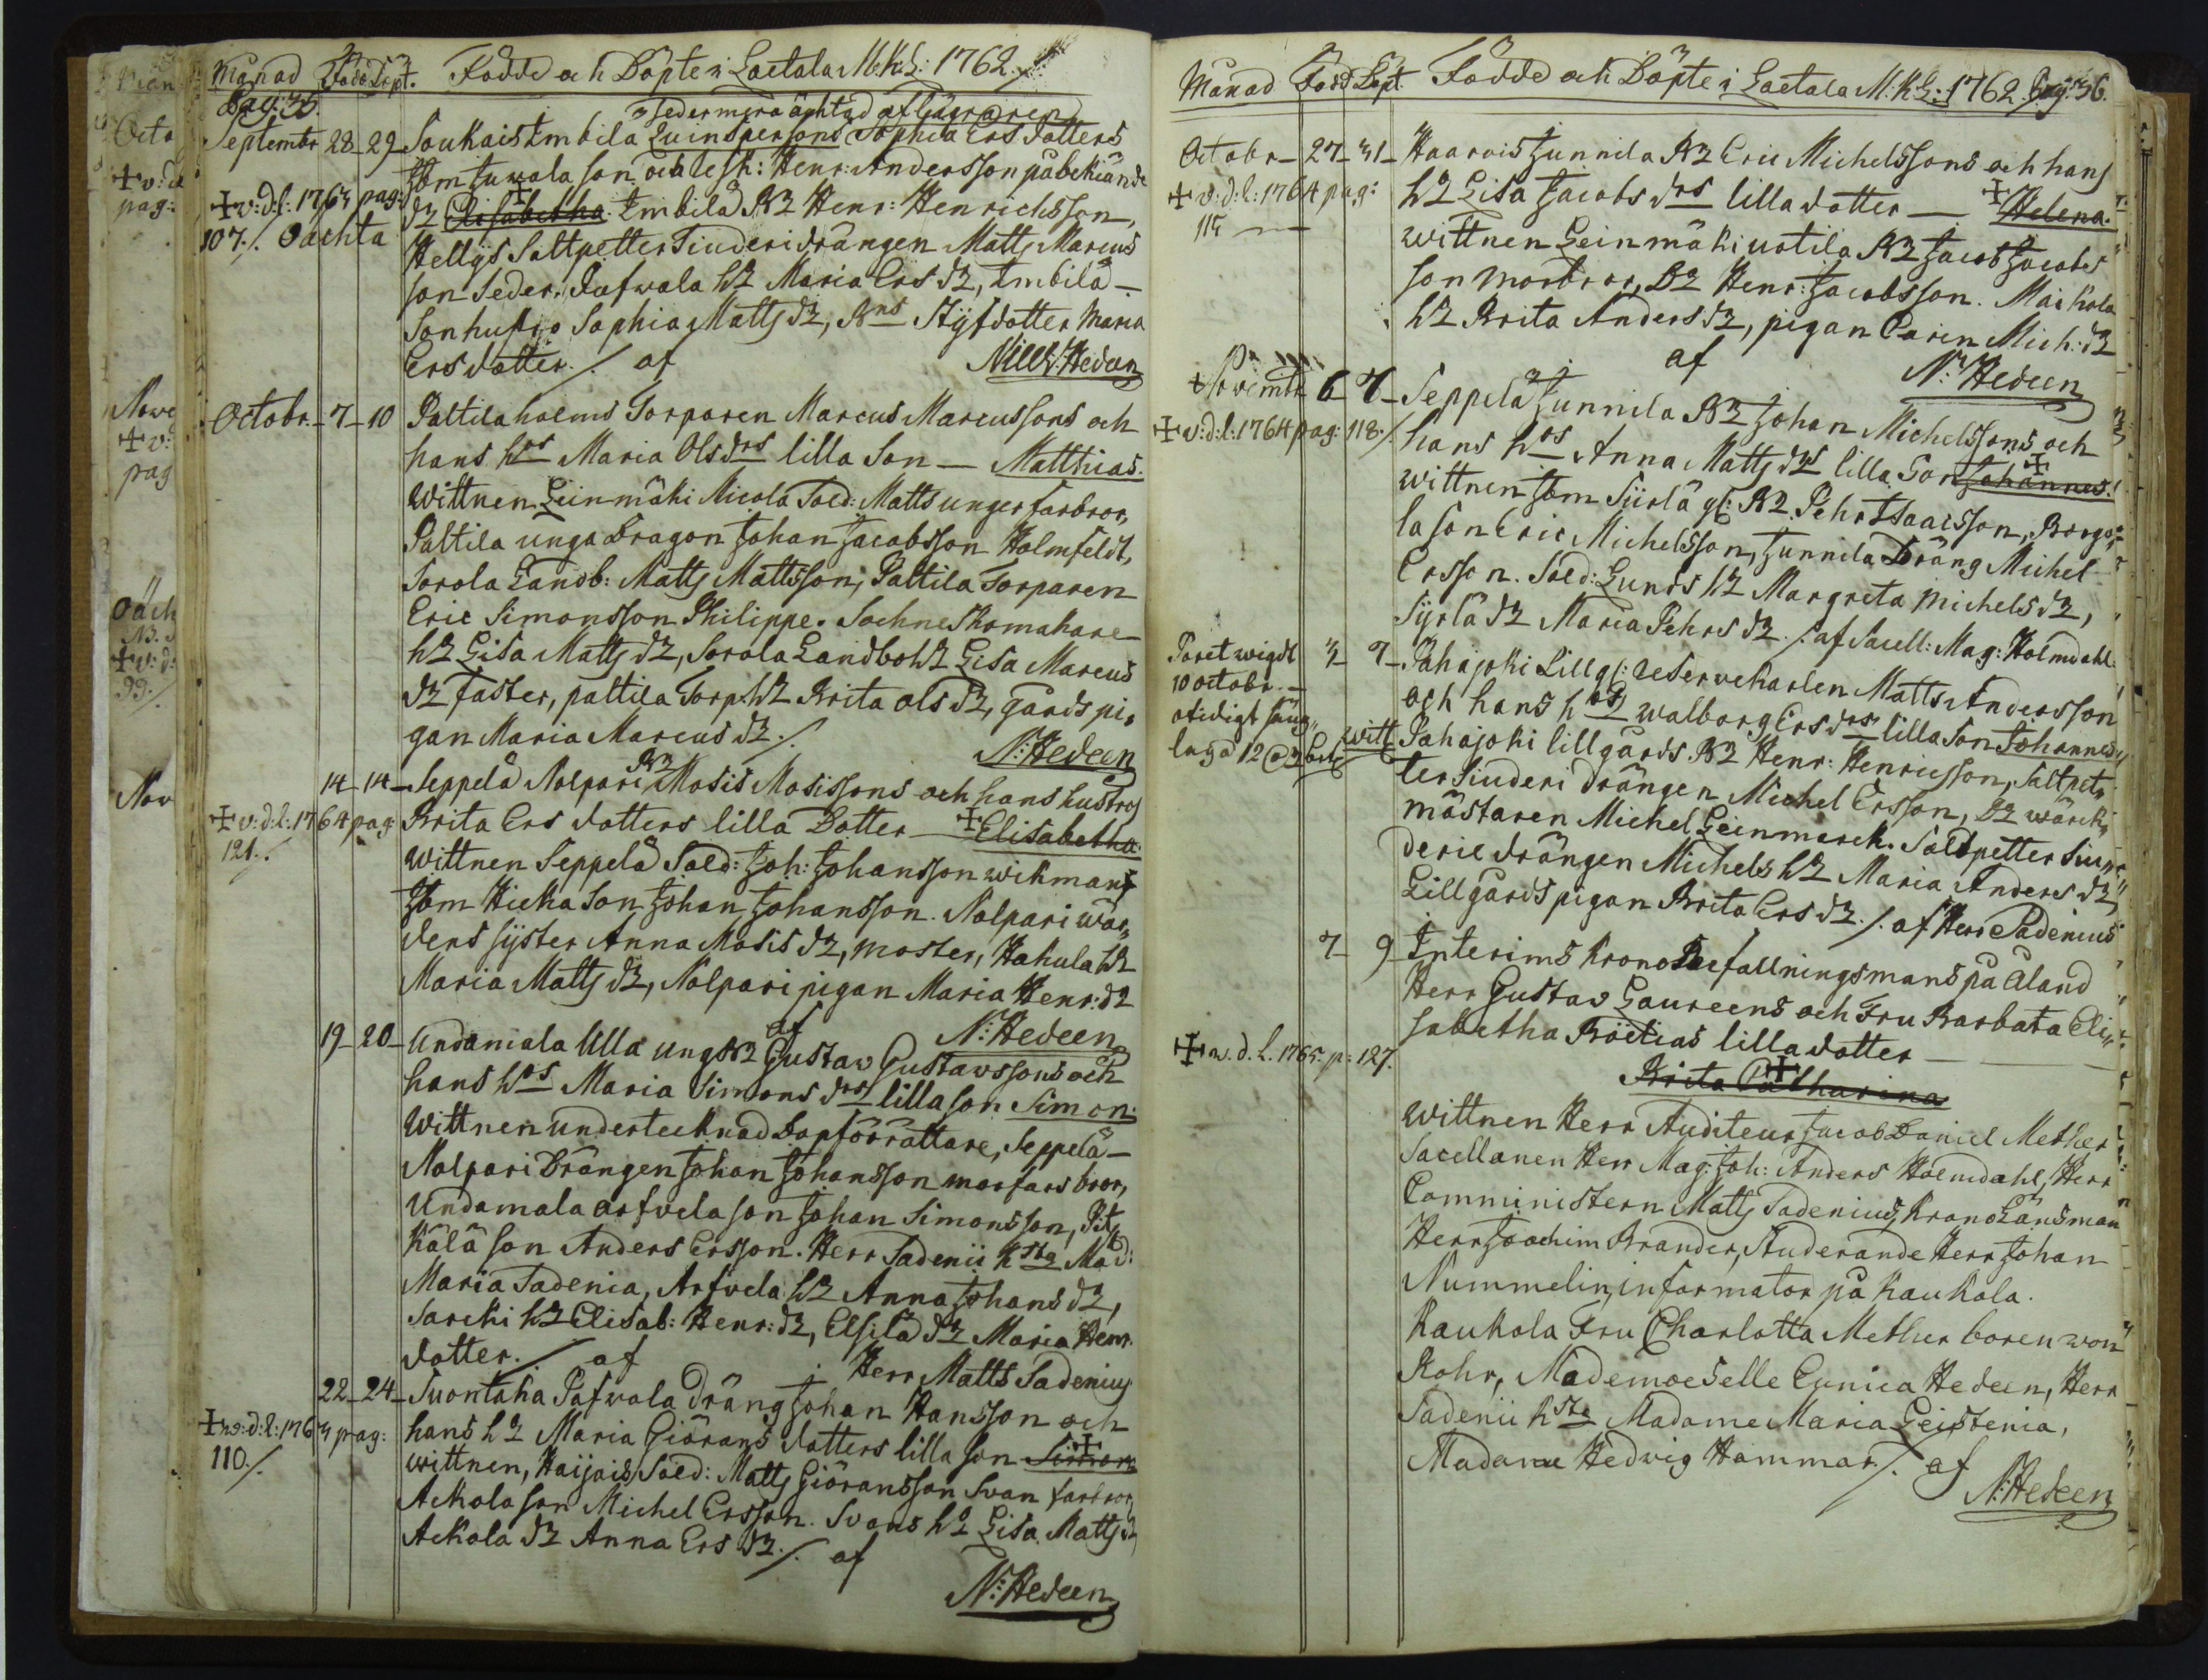 Månad Född Döpt. Födde och Döpte i Laetala M:k:L: 1762.
Pag: 35.
Sedermera ächtad af lägraren
Septembr 28 29 Soukais Imbila Quinspersons Sophia Ers dotters
som Juvala son och lesk: Henr: Andersson påbekiände
✝ v: d: l: 1763 pag: 107./. Oächta
dr Elisabetha. Imbilä Bd Henr: Henrichsson,
Hellgs Saltpetter Siuderidrängen Matts Marcus
son Seder. Pafwala h: Maria Ers dr, Imbilä
Sonhustro Sophia Matts dr, Bns Styfdotter Maria
Ers dotter./. af Nils Hedeen
Octobr. 7 10 Paltila holms Torparen Marcus Marcussons och
hans hos Maria Ols drs lilla Son — Matthias.
Wittnen Leinmäki Nicola Sold: Matts unger farbror,
Paltila unga Dragon Johan Jacobsson Holmfeldt,
Sorola Landb: Matts Mattsson, Paltila Torparen
Eric Simonsson Philippe. Sochne Skomakare
h: Lisa Matts dr, Sorola Landbo h: Lisa Marcus
dr faster, paltila Torp: h: Brita Ols dr, gårds pi,
gan Maria Marcus dr./. N: Hedeen
14 14 Seppelä Nolpari Bd Mosis Mosissons och hans hustros
✝ v: d: l: 1764 pag: 121./.
Brita Ers dotters lilla Dotter — ✝ Elisabetha.
Wittnen Seppelä Sold: Joh: Johansson wikman,
som Hieka Son Johan Johansson. Nolpari wär,
dens syster Anna Mosis dr, moster, Hakula h:
Maria Matts dr, Nolpari pigan Maria Henr: dr
af N: Hedeen
19 20 Undamala Ulla ung Bd Gustav Gustavssons och
hans hos Maria Simons drs lilla son Simon.
Wittnen undertecknad Dopförrättare, Seppelä
Nolpari Drängen Johan Johansson morfars bror,
Undamala Arfvela son Johan Simonsson, Pit,
kälä son Anders Ersson. Herr Sadenii K sta Mad:
Maria Sadenia, Arfvela h: Anna Johans dr,
Sarcki h: Elisab: Henr: dr, Elsilä dr Maria Henr:
dotter./. af Herr Matts Sadenius
22 24 Suontaka Pafwola dräng Johan Hansson och
✝ v: d: l: 1763 pag: 110./.
hans h: Maria Giörans dotters lilla son ✝ Simon
wittnen, Haijais Sold: Matts Giöransson Svan farbror,
Ackola son Michel Ersson. Svans h: Lisa Matts dr
Ackola dr Anna Ers dr./. af
N: Hedeen
Månad Född Döpt. Födde och Döpte i Laetala M:K:L: 1762. Pag: 36.
Octobr 27 31 Haarois Junnila Bd Eric Michelssons och hans
✝ v: d: l: 1764 pag: 115
h: Lisa Jacobs drs lilla dotter — ✝ Helena.
wittnen Leinmäki uotila Bd Jacob Jacobs
son morbror, Dr Henr: Jacobsson. Maikola
h: Brita Anders dr, pigan Carin Mich: dr
af N: Hedeen
Novembr 6 7 Seppelä Junnila Bd Johan Michelssons och
✝ v: d: l: 1764 pag: 118./.
hans hos Anna Matts drs lilla Son ✝ Johannes.
wittnen som Siirlä gl: Bd Pehr Isaacsson, Borgo,
la son Eric Michelsson, Junnila Dräng Michel
Ersson. Sold: Lunds h: Margreta Michels dr,
Syrlä dr Maria Pehrs dr./. af Sacell: Mag: Holmdahl.
Paret wigdt 10 octobr. otidigt säng, laga
3 7 Pahajoki Lillg: reservekarlen Matts Andersson
och hans hos walborg Ers drs lilla son Johannes
witt Pahajoki lillgårds Bd Henr: Henricsson, Saltpet,
ter siuderi drängen Michel Ersson, Dr wärck,
mästaren Michel Leinmerck. Saltpetter siu,
derie drängen Michels h: Maria Anders dr,
Lillgårds pigan Brita Ers dr./. af Herr Sadenius
7 9 Interims Krono Befallningsmans på Åland
Herr Gustav Laureens och Fru Barbata Eli,
sabetha Böelias lilla dotter
✝ v. d. l. 1765. p: 127.
✝ Brita Catharina
Wittnen Herr Auditeur Jacob Daniel Mether
Sacellanen Herr Mag: Joh: Anders Holmdahl, Herr
Comministern Matts Sadenius, Krono Länsman
Herr Joachim Brander, Studerande Herr Johan
Nummelin, informator på Kaukola.
Kaukola Fru Charlotta Mether boren von
Rohr, Mademoeselle Eunica Hedeen, Herr
Sadenii h sta Madame Maria Leistenia,
Madame Hedvig Hammar./. af
N: Hedeen